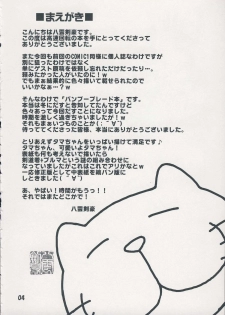 ■まえがき■
こんにちは八雲剣豪です。
この度は高速回転の本を手にとってくださって
ありがとうございました。
まて今回も前回のCOMIC1同様に個人誌なわけですが
別に狙ったわけではなく
単にゲスト原稿を依頼し忘れただけだったりー。
頼みたかった人がいたのに!w
でもまぁ結果的に色々描いて載せられたので
いいかなぁー?w
そんなわけで「バンブーブレード本」です。
本当は冬にだすと告知してたんですけれど
色々あって今回だすことになりましたw
時期を逃しつ過ぎちゃいましたねw
それもまぁいつもの如くだと(;´∀`)
待っててくださった皆様、本当にありがとうございました。
とりあえずタマちゃんをいっぱい描けて満足です♪
タマちゃん、可愛いよタマちゃん!
表紙も何も考えないで描いてたら
剣道着+ブルマという謎の組み合わせに
なっていましたがこれはこれでアリかなとw
一応修正版として中表紙を紺パン版に
しときました(;´∀`)
あ、やばい!時間がもうっ!!
それではまたどこかで!
八雲剣豪
04